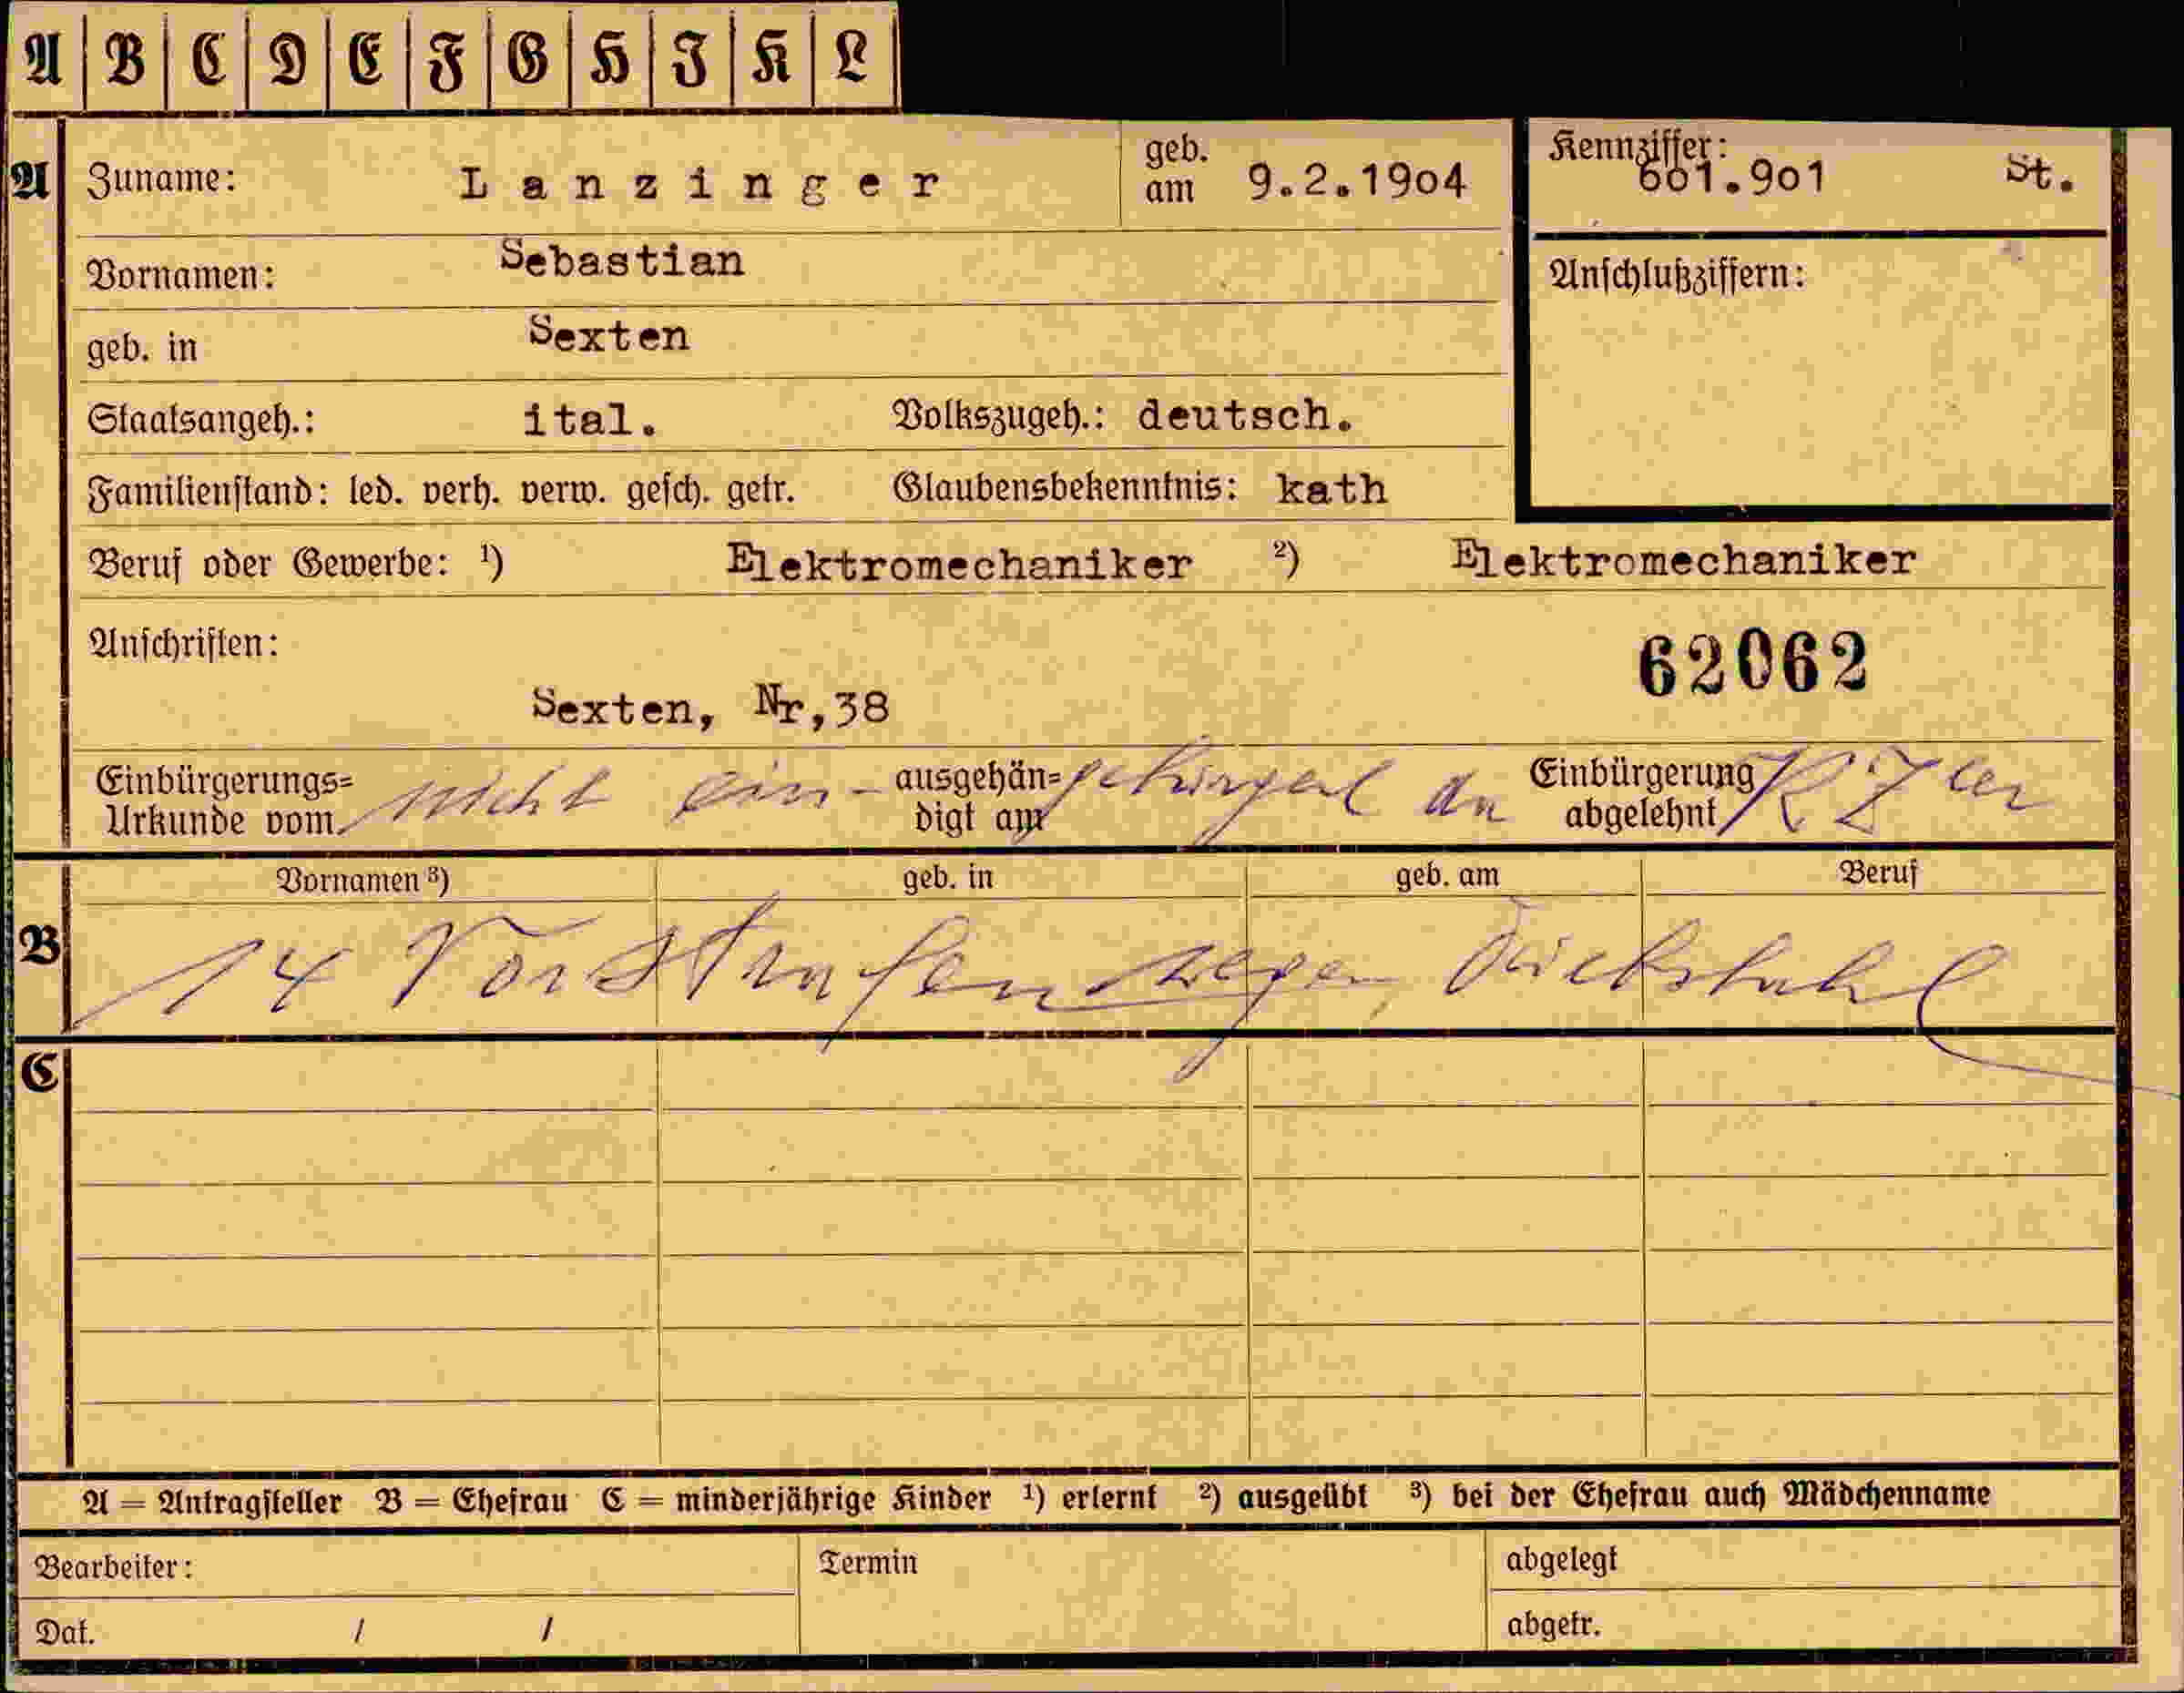 A B C D E F G H I K L
A Zuname: Lanzinger geb. am 9.2.1904 Kennziffer: 601.901 St.
Vornamen: Sebastian Anschlußziffern:
geb. in Sexten
Staatsangeh.: ital. Volkszugeh.: deutsch.
Familienstand: led. verh. verw. gesch. getr. Glaubensbekenntnis: kath
Beruf oder Gewerbe: 1) Elektromechaniker 2) Elektromechaniker
Anschriften: 62062
Sexten, Nr,38
Einbürgerungs= nicht ein- ausgehän= gebürgert da Einbürgerung KZler
Urkunde vom digt am abgelehnt
Vornamen 3) geb. in geb. am Beruf
B 14 Vorstrafen wegen Diebstahl
C
A = Antragsteller B = Ehefrau C = minderjährige Kinder 1) erlernt 2) ausgeübt 3) bei der Ehefrau auch Mädchenname
Bearbeiter: Termin abgelegt
Dat. / / abgetr.